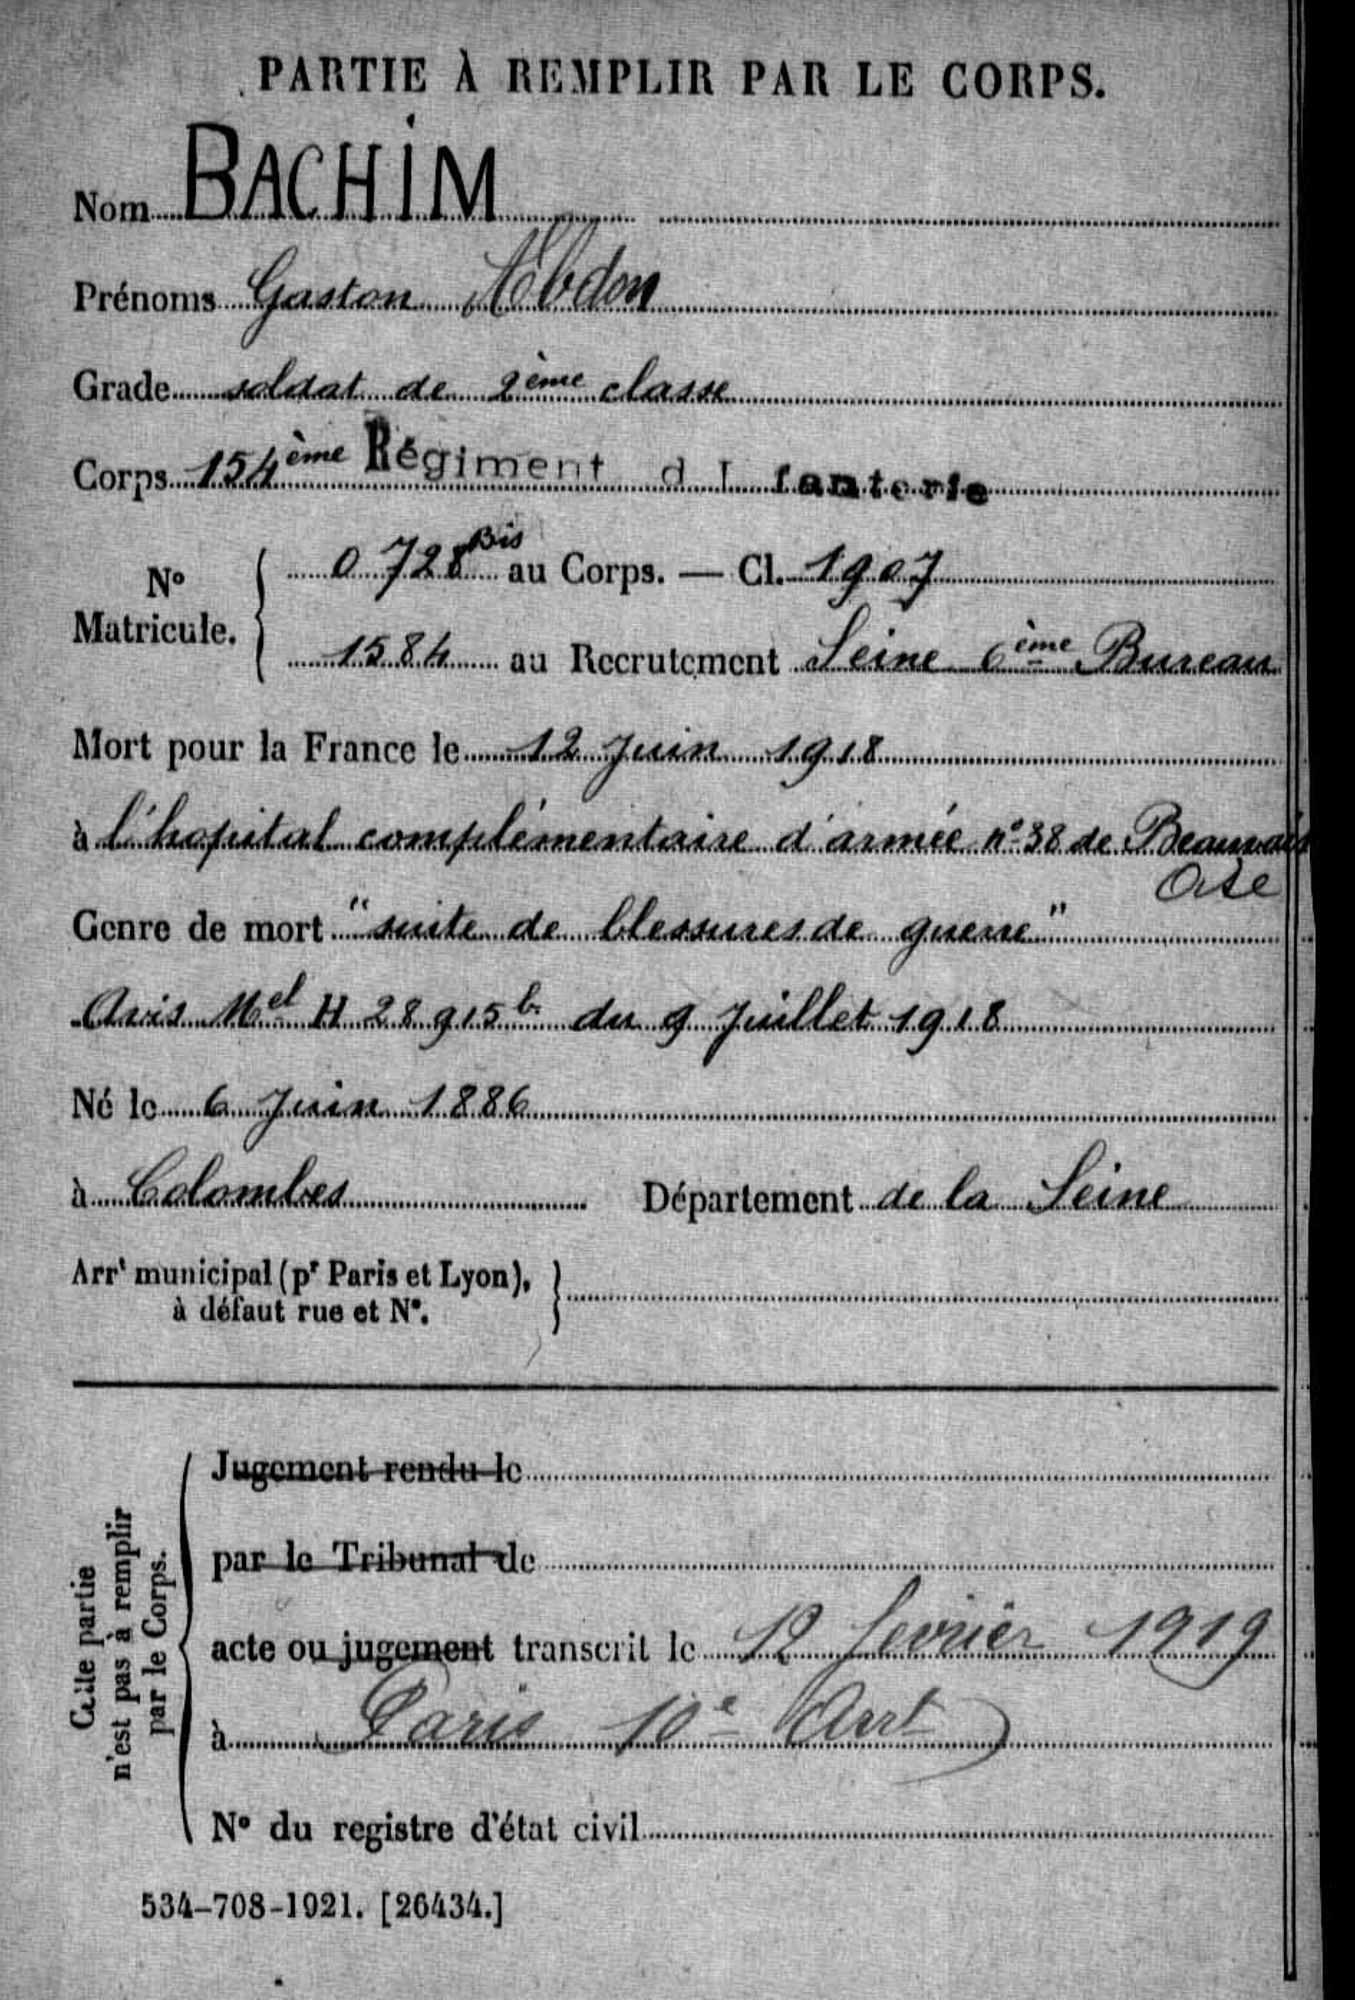 PARTIE À REMPLIR PAR LE CORPS.
Nom BACHIM
Prénoms Gaston Abdon
Grade soldat de 2ème classe
Corps 154ème Régiment d I fanterie
No Matricule. { 0728 Bis au Corps. — Cl. 1907
1584 au Recrutement Seine 6ème Bureau
Mort pour la France le 12 Juin 1918
à l'hopital complémentaire d'armée no 38 de Beauvais
Oise
Genre de mort "suite de blessures de guerre"
Avis Mel H 28915 b du 9 Juillet 1918
Né le 6 Juin 1886
à Colombes Département de la Seine
Arrt municipal (pr Paris et Lyon), à défaut rue et No. }
Cette partie n'est pas à remplir par le Corps.
Jugement rendu le
par le Tribunal de
acte ou jugement transcrit le 12 fevrier 1919
à Paris 10e Arrt
No du registre d'état civil
534-708-1921. [26434.]